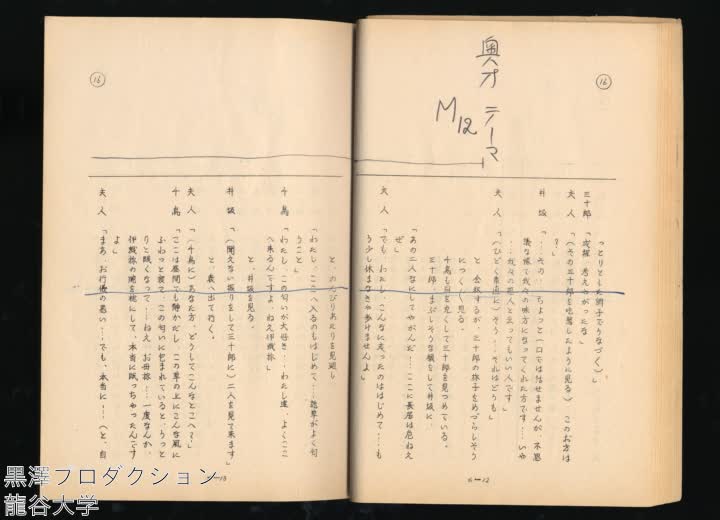 ⑯
奥方 テーマ
M12
っとりとした調子でうなづく）」
三十郎「成程、考えやがったな」
夫人「（その三十郎を吃驚したように見る）このお方は
？」
井坂「……その……ちょっと（口では話せませんが、不思
議な縁で我々の味方になってくれた方です……いや
……我々の恩人と云ってもいい人です」
夫人「（ひどく素直に）そう……それはどうも」
と、会釈するが、三十郎の様子をめづらしそう
につくづく見る。
千鳥も目を丸くして三十郎を見つめている。
三十郎、まぶしそうな顔をして井坂に、
「あの二人なにしてやがんだ……ここに長居は危ねえ
ぜ」
夫人「でも、わたし、こんなに走ったのははじめて……も
う少し休まなきゃ歩けませんよ」
6—12
⑯
と、のんびりあたりを見廻し
「わたし、ここへ入るのもはじめて……乾草がよく匂
うこと」
千鳥「わたし、この匂いが大好き……わたし達、よくここ
へ来るんですよ、ねえ伊織様」
と、井坂を見る。
井坂「（聞えない振りをして三十郎に）二人を見て来ます」
と、表へ出て行く。
夫人「（千鳥に）あなた方、どうしてこんなとこへ？」
千鳥「ここは昼間でも静かだし、この草の上にこんな風に
ふわっと寝て、この匂いに包まれていると、うっと
りと眠くなって……ねえ、お母様……一度なんか、
伊織様の腕を枕にして、本当に眠っちゃったんです
よ」
夫人「まあ、お行儀の悪い……でも、本当に！（と、自
—13
黒澤プロダクション
龍谷大学